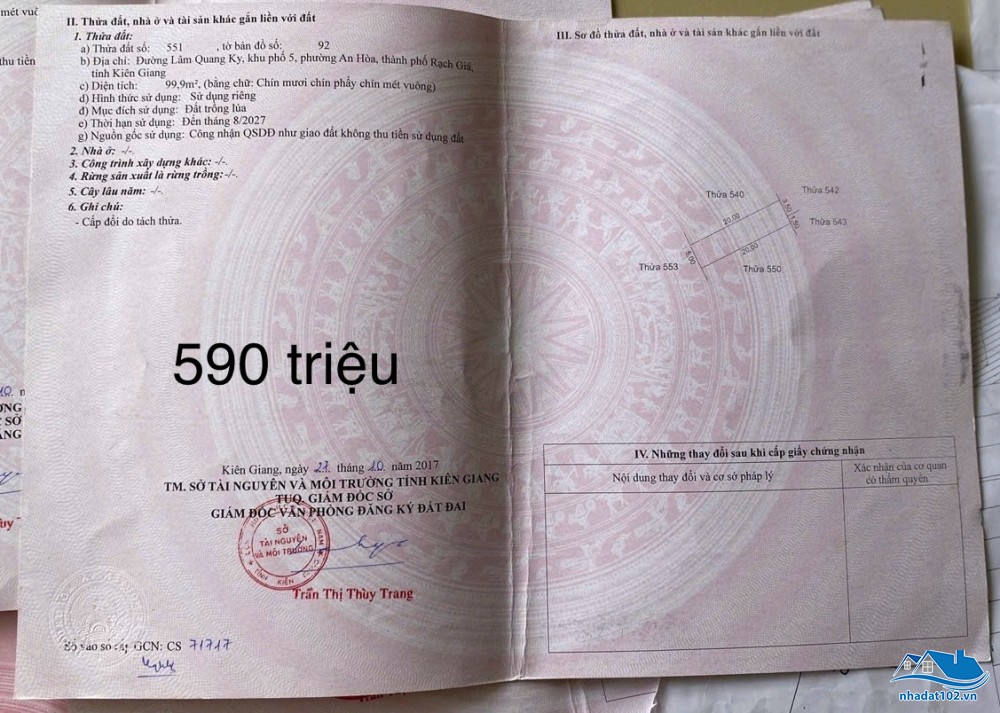 mét vuô
thu tiền
II. Thửa đất, nhà ở và tài sản khác gắn liền với đất
1. Thửa đất:
a) Thửa đất số: 551 , tờ bản đồ số: 92
b) Địa chỉ: Đường Lâm Quang Ky, khu phố 5, phường An Hòa, thành phố Rạch Giá,
tỉnh Kiên Giang
c) Diện tích: 99,9m², (bằng chữ: Chín mươi chín phẩy chín mét vuông)
d) Hình thức sử dụng: Sử dụng riêng
đ) Mục đích sử dụng: Đất trồng lúa
e) Thời hạn sử dụng: Đến tháng 8/2027
g) Nguồn gốc sử dụng: Công nhận QSDĐ như giao đất không thu tiền sử dụng đất
2. Nhà ở: -/-.
3. Công trình xây dựng khác: -/-.
4. Rừng sản xuất là rừng trồng:-/-.
5. Cây lâu năm: -/-.
6. Ghi chú:
- Cấp đổi do tách thửa.
590 triệu
Kiên Giang, ngày 27 tháng 10 năm 2017
TM. SỞ TÀI NGUYÊN VÀ MÔI TRƯỜNG TỈNH KIÊN GIANG
TUQ. GIÁM ĐỐC SỞ
GIÁM ĐỐC VĂN PHÒNG ĐĂNG KÝ ĐẤT ĐAI
SỞ
TÀI NGUYÊN
VÀ MÔI TRƯỜNG
TỈNH KIÊN
Trần Thị Thùy Trang
GCN: CS 71717
III. Sơ đồ thửa đất, nhà ở và tài sản khác gắn liền với đất
Thửa 540
Thửa 542
20.00
3.50
1.50
Thửa 543
5.00
20.00
Thửa 553
Thửa 550
IV. Những thay đổi sau khi cấp giấy chứng nhận
Nội dung thay đổi và cơ sở pháp lý
Xác nhận của cơ quan
có thẩm quyền
nhadat102.vn